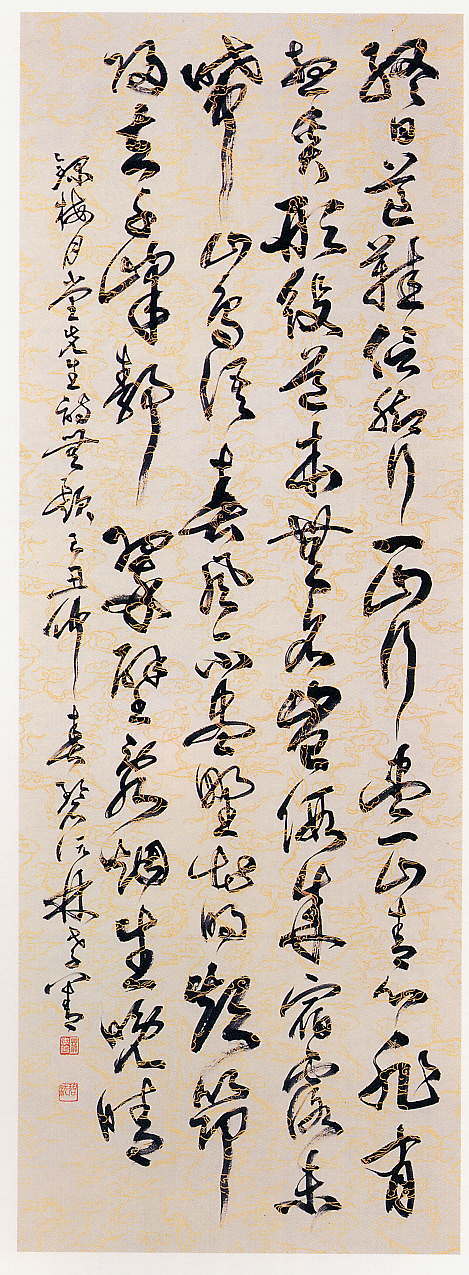 終日芒鞋信脚行一山行盡一山青心非有
想奚形役道本無名豈假成宿露未
晞山鳥語春風不盡野花明短筇
歸去千峰靜翠壁亂烟生晚晴
錄梅月堂先生詩無題 丑仲春 林